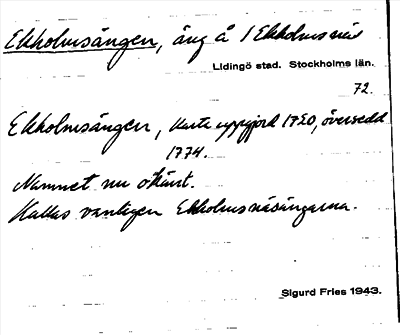 Ekholmsängen, äng å 1 Ekholmsnäs
Lidingö stad. Stockholms län.
72.
Ekholmsängen, Karta uppgjord 1720, översedd
1774.
Namnet nu okänt.
Kallas vanligen Ekholmsnäsängarna.
Sigurd Fries 1943.